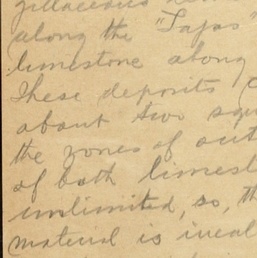 along the "Tapas"
limestone along
These deposits
about two squ
the zones of out
of both limest
unlimited, so, th
material is